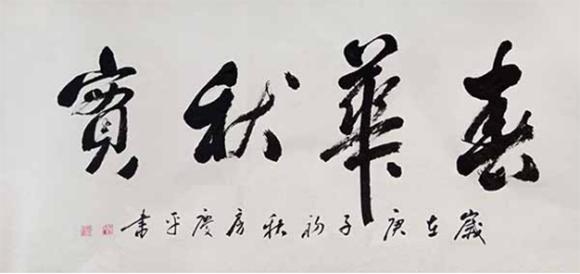 春華秋實
歲在庚子初秋房慶平書